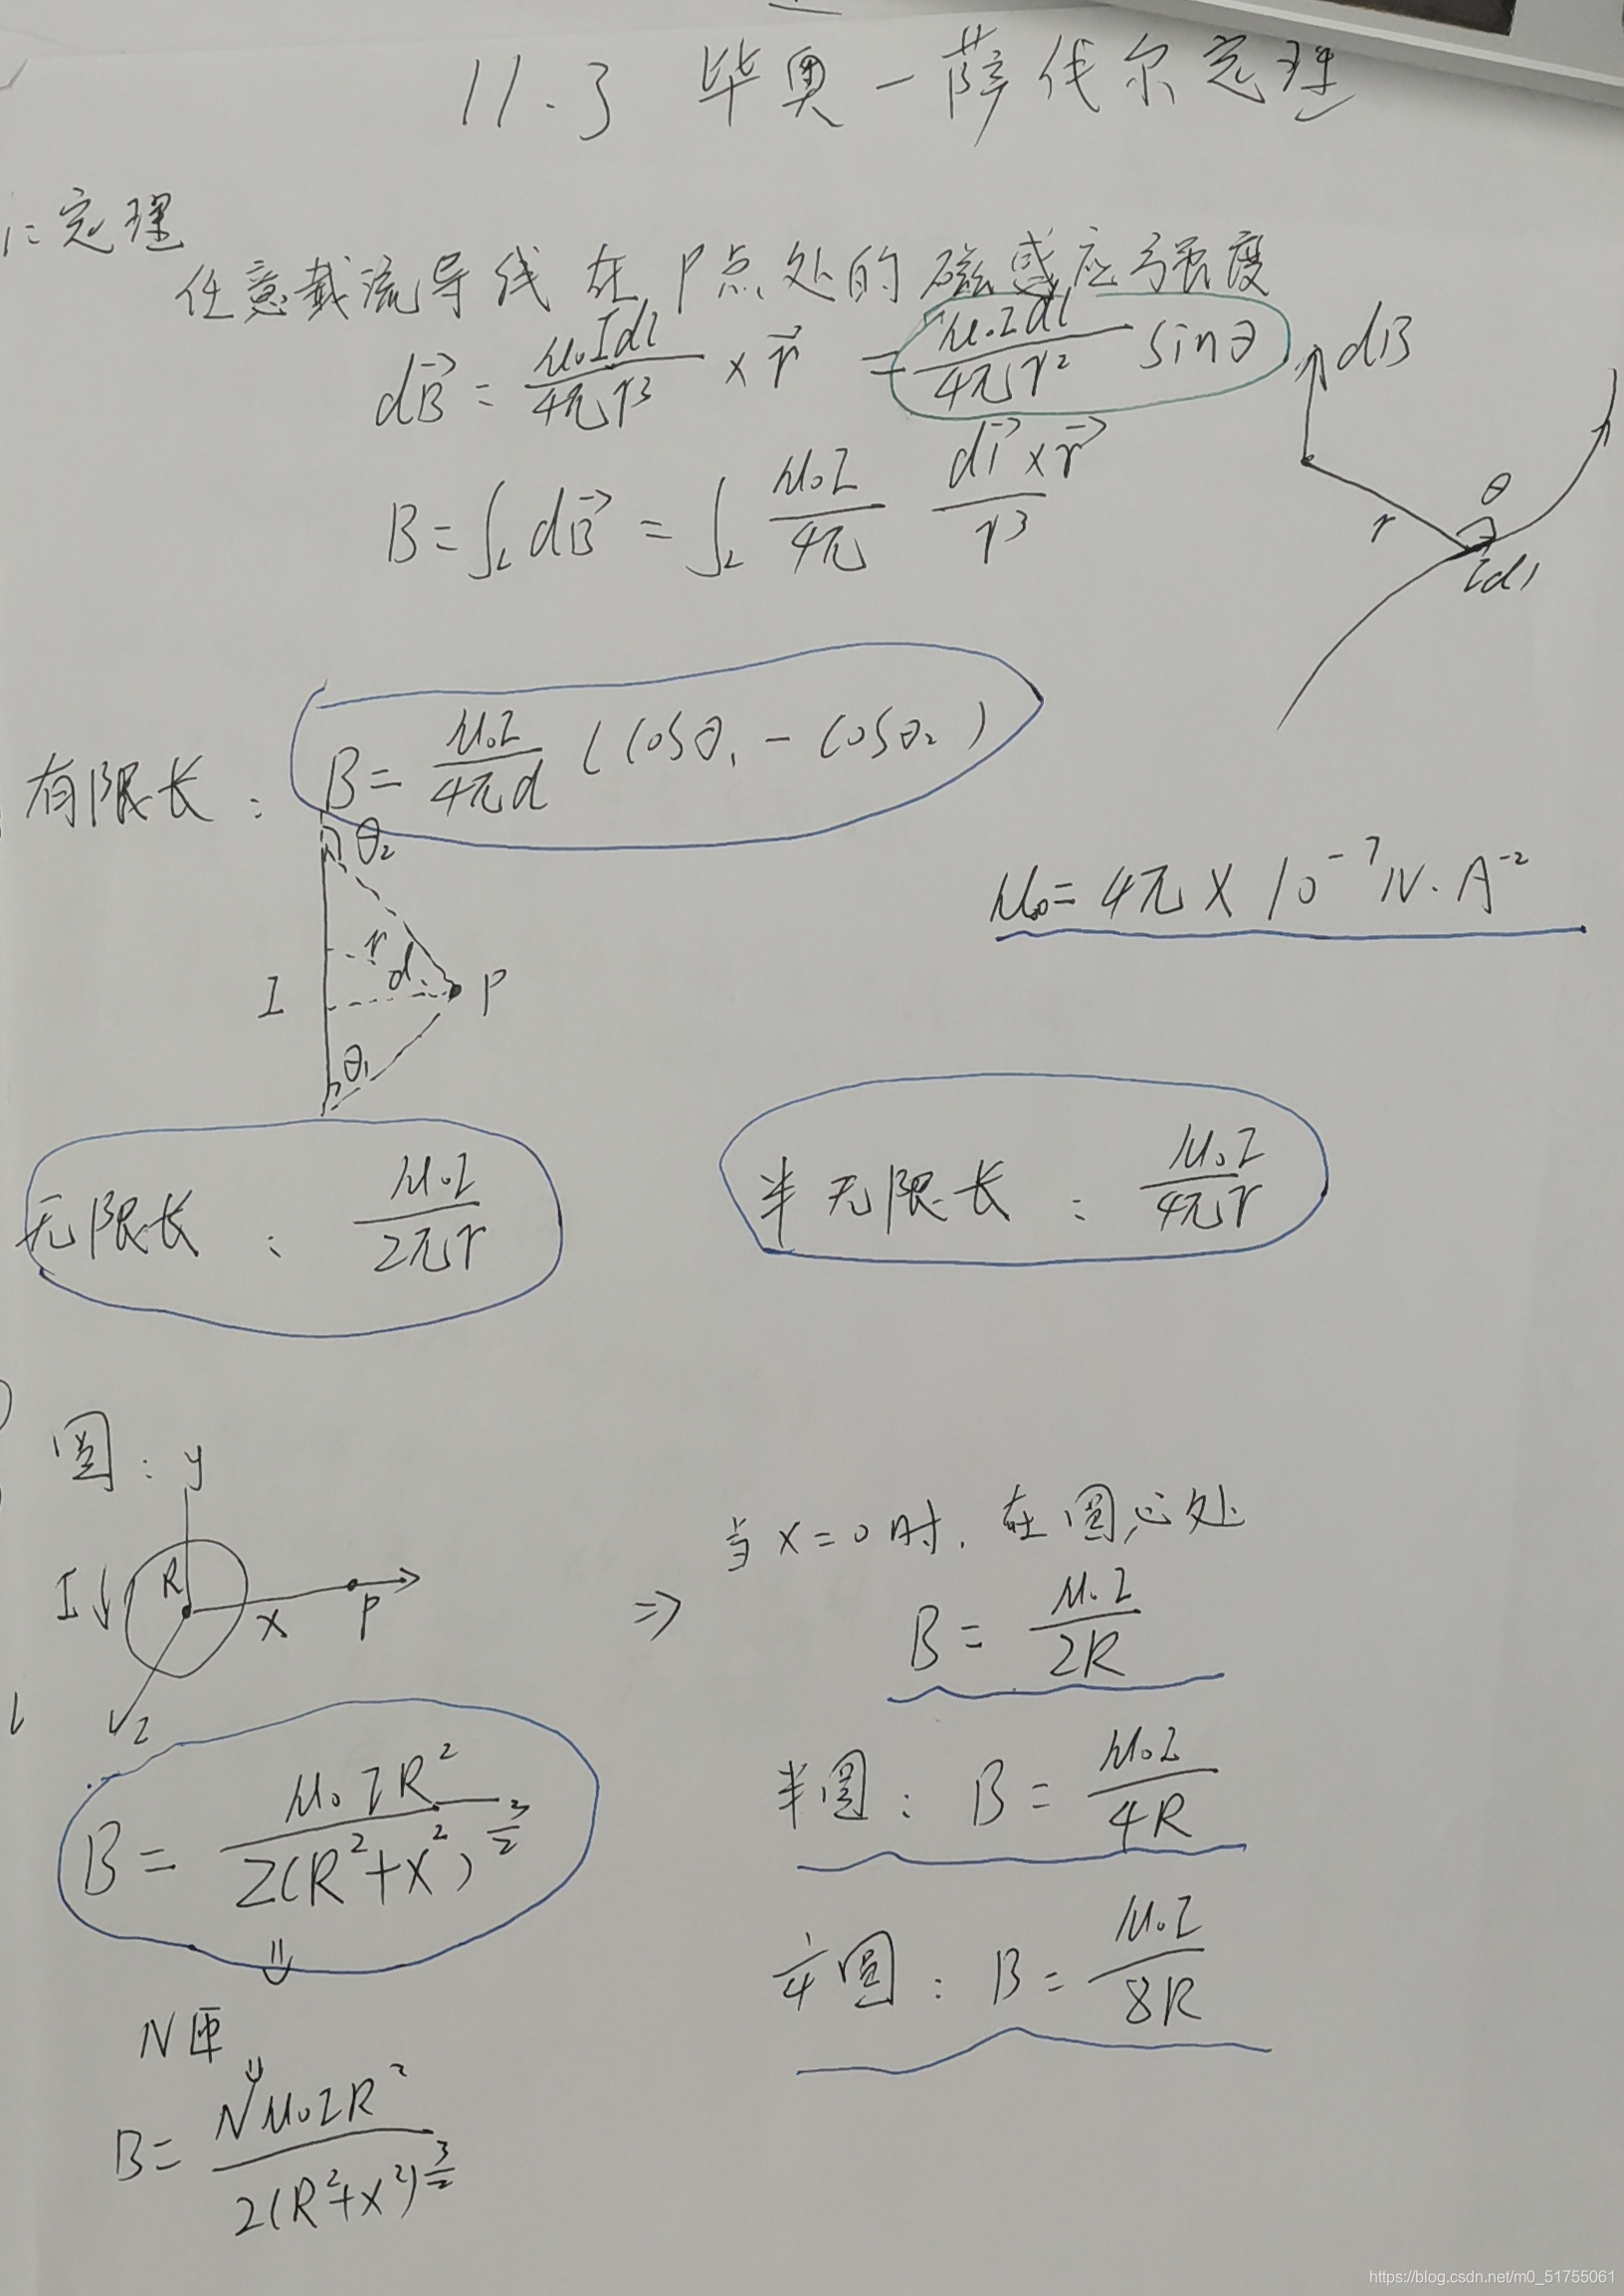 11.3 毕奥-萨伐尔定理
1: 定理
任意载流导线在P点处的磁感应强度
dB⃗ = μ₀Idl/4πr³ × r⃗ = μ₀Idl/4πr² sinθ
dB
B = ∫_L dB⃗ = ∫_L μ₀I/4π dl⃗×r⃗/r³
θ
r
Idl
有限长: B = μ₀I/4πd (cosθ₁ - cosθ₂)
θ₂
μ₀ = 4π × 10⁻⁷ N·A⁻²
r
d
I P
θ₁
无限长: μ₀I/2πr
半无限长: μ₀I/4πr
圆: y
I R
x P
z
B = μ₀IR²/2(R²+x²)^(3/2)
⇓
N匝
⇓
B = Nμ₀IR²/2(R²+x²)^(3/2)
⇒ 当x=0时, 在圆心处
B = μ₀I/2R
半圆: B = μ₀I/4R
1/4圆: B = μ₀I/8R
https://blog.csdn.net/m0_51755061